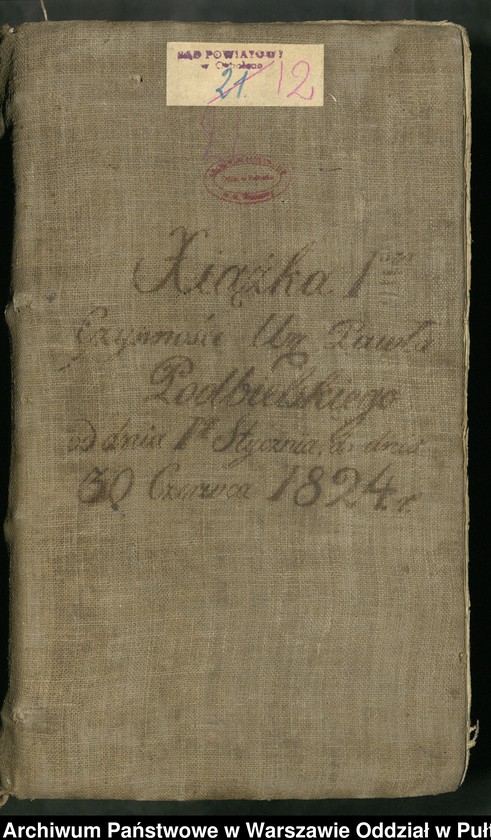 SĄD POWIATOWY
w
21 12
Xiążka 1
Czynności Ur. Pawła
Podbielskiego
od dnia 1 Stycznia, do dnia
30 Czerwca 1824 r.
Archiwum Państwowe w Warszawie Oddział w Puł